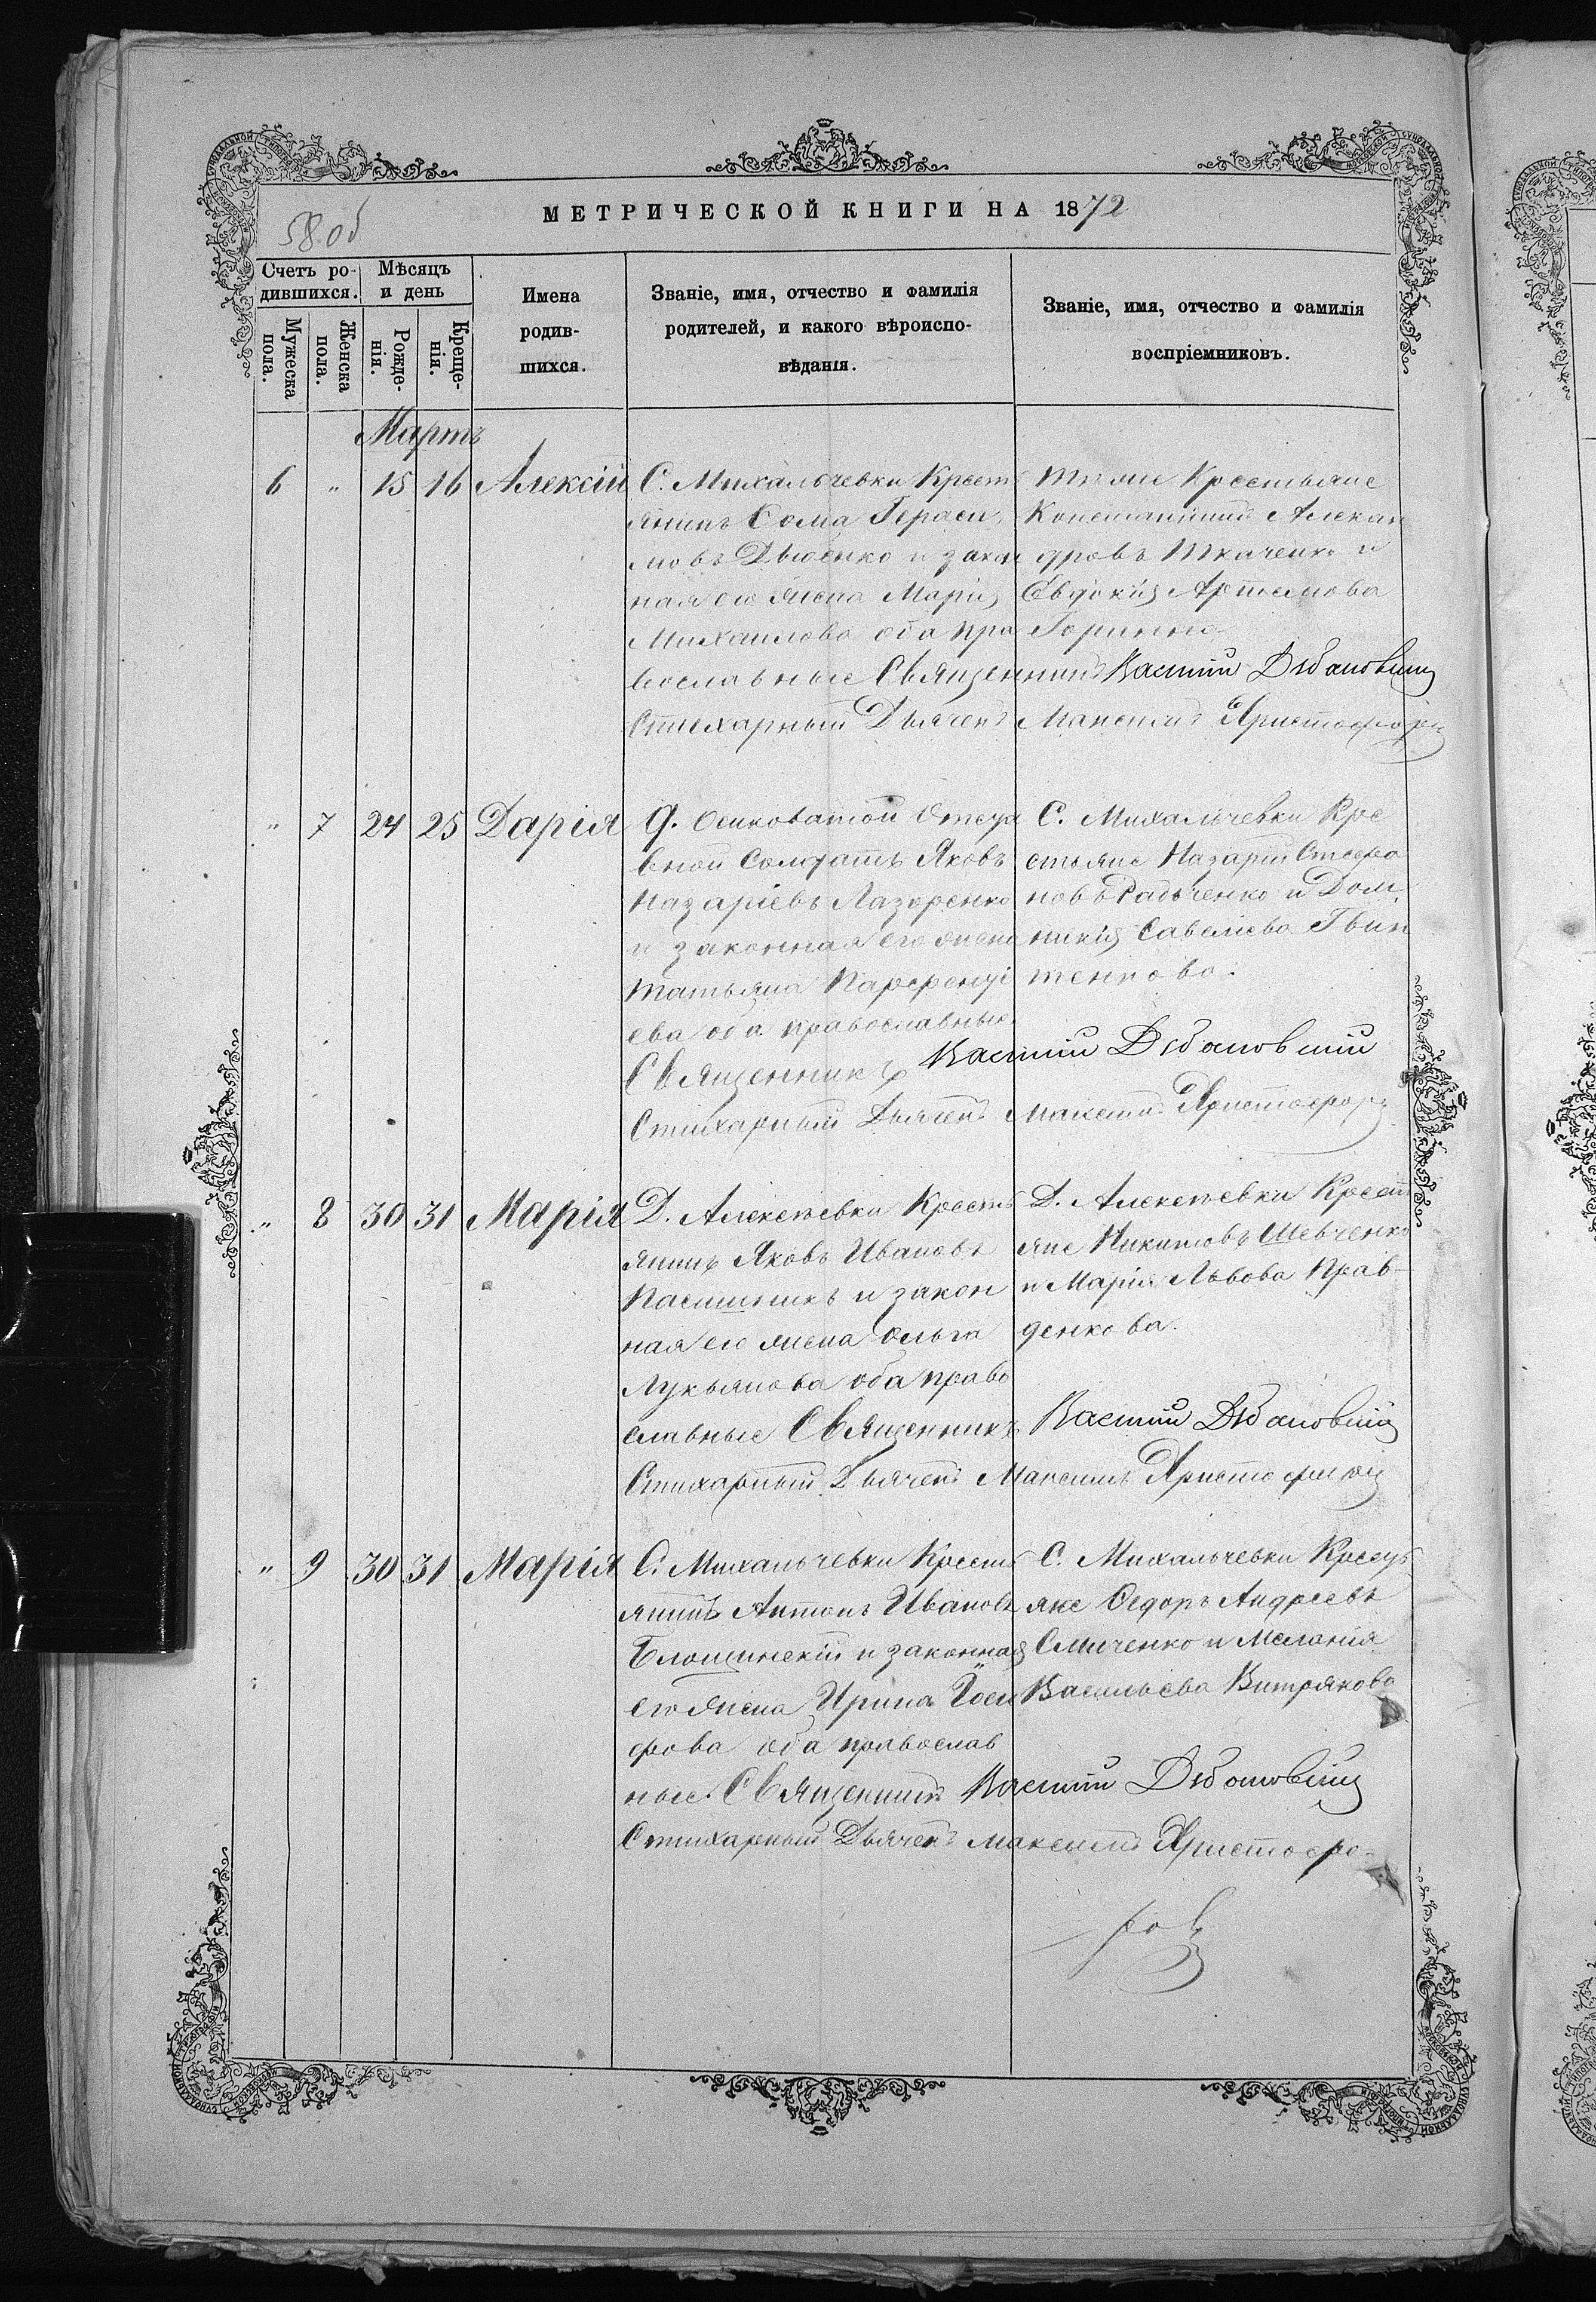 58 об
МЕТРИЧЕСКОЙ КНИГИ НА 1872
Счетъ ро-
дившихся.
Мужеска
пола.
Женска
пола.
Мѣсяцъ
и день
Рожде-
нія.
Креще-
нія.
Имена
родив-
шихся.
Званіе, имя, отчество и фамилія
родителей, и какого вѣроиспо-
вѣданія.
Званіе, имя, отчество и фамилія
воспріемниковъ.
Мартъ
6 " 15 16 Алексій
С. Михальчевки Крест
янинъ Ѳома Гераси
мовъ и закон
ная его жена Марія
Михаилова оба пра
вославные Священникъ Василій
Стихарный Дьячекъ Максимъ Христофоръ
Тѣ же Крестьяне
Константинъ Алексан
дровъ Ткаченко и
Евдокія Артемова
" 7 24 25 Дарія
Д. Осиковатой Отста
вной Солдатъ Яковъ
Назаріевъ Лазоренко
и законная его жена
Татьяна Парфенті
ева оба православные.
Священникъ Василій
Стихарный Дьячекъ Максимъ Христофоръ
С. Михальчевки Кре
стьяне Назарій Стефа
новъ Радченко и Дом
никія Савеліева Гвин
тенкова.
" 8 30 31 Марія
Д. Алексѣевки Кресть
янинъ Яковъ Ивановъ
Пасішникъ и закон
ная его жена Ольга
Лукьянова оба право
славные Священникъ Василій
Стихарный Дьячекъ Максимъ
Д. Алексѣевки Крест
яне Никитовъ Шевченко
и Марія Львова Прав-
денкова.
" 9 30 31 Марія
С. Михальчевки Кресть
янинъ Антонъ Ивановъ
и законная
его жена Ирина Іоси
фова оба православ
ные. Священникъ Василій
Стихарный Дьячекъ Максимъ Христофо-
ровъ
С. Михальчевки Кресть
яне Ѳедоръ Андреевъ
и Меланія
Васильева Витрякова